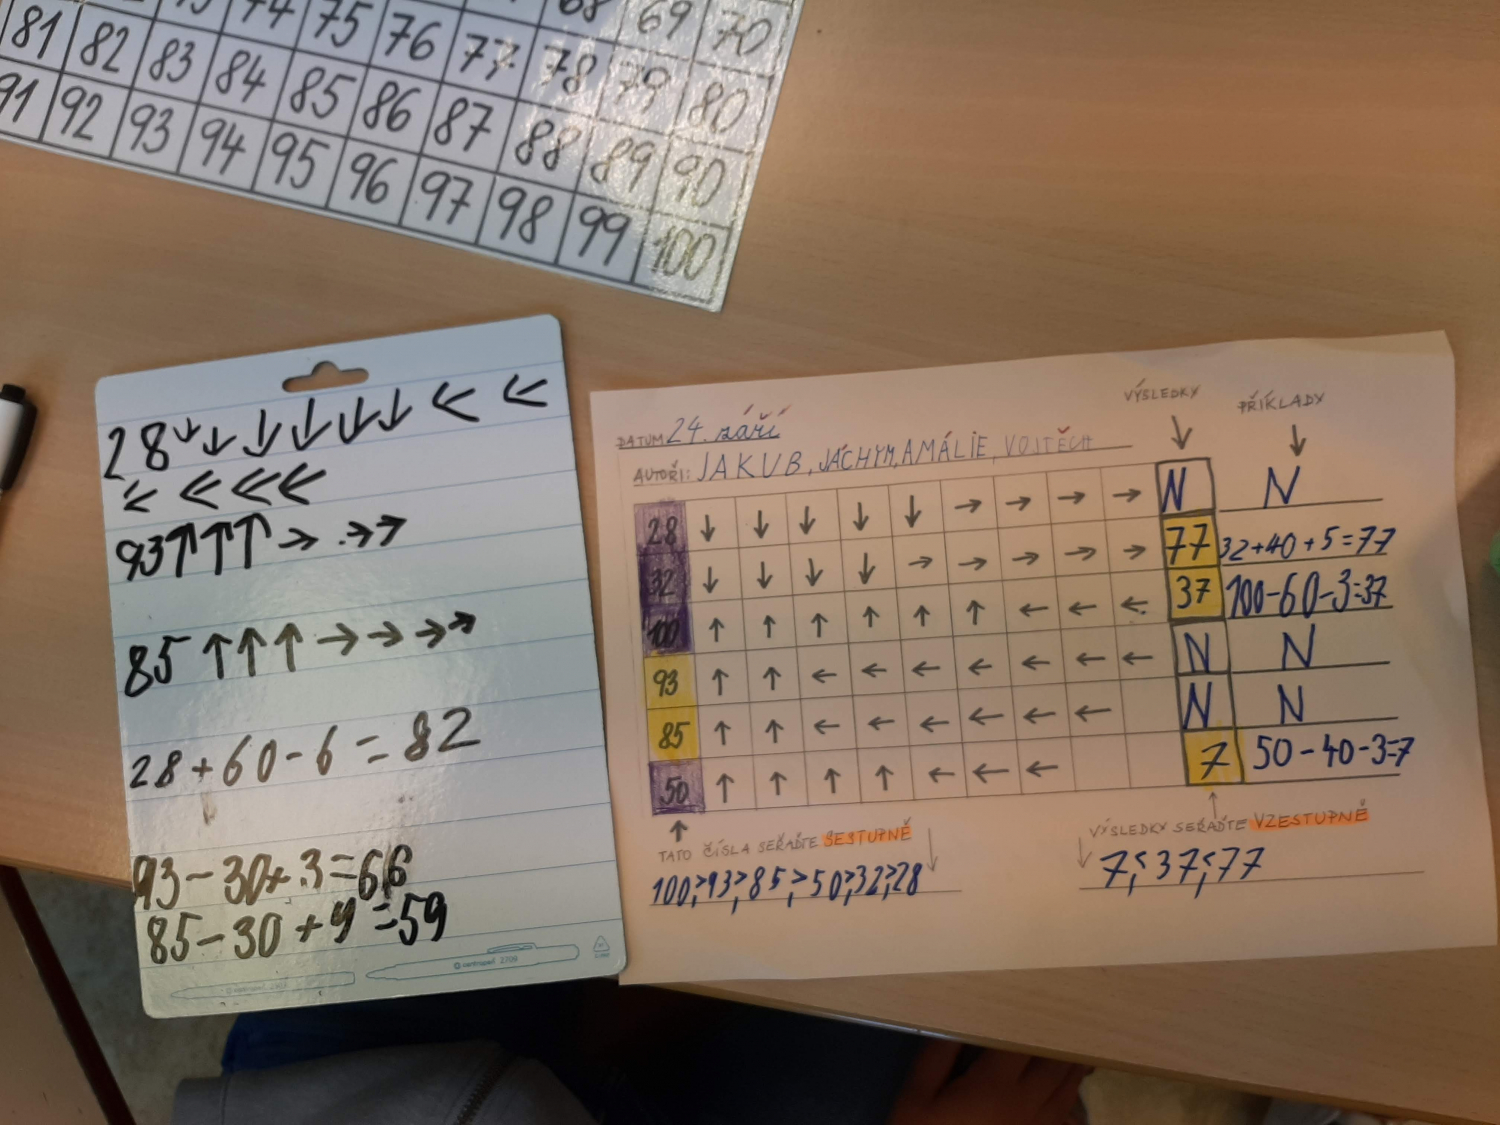 74 75 76 68 69 70
81 82 83 84 85 86 77 78 79 80
91 92 93 94 95 96 87 88 89 90
97 98 99 100
28 ↓ ↓ ↓ ↓ ↓ ↓ ← ←
← ← ← ←
93 ↑ ↑ ↑ → → →
85 ↑ ↑ ↑ → → → →
28 + 60 - 6 = 82
93 - 30 + 3 = 66
85 - 30 + 4 = 59
centropen 2709
VÝSLEDKY PŘÍKLADY
↓ ↓
DATUM 24. září
AUTOŘI: JAKUB, JÁCHYM, AMÁLIE, VOJTĚCH
28 ↓ ↓ ↓ ↓ ↓ → → → → N N
32 ↓ ↓ ↓ ↓ → → → → → 77 32+40+5=77
100 ↑ ↑ ↑ ↑ ↑ ↑ ← ← ← 37 100-60-3=37
93 ↑ ↑ ← ← ← ← ← ← ← N N
85 ↑ ↑ ← ← ← ← ← ← N N
50 ↑ ↑ ↑ ↑ ← ← ← 7 50-40-3=7
TATO ČÍSLA SEŘAĎTE SESTUPNĚ
100>,93>,85,>50>,32>,28
VÝSLEDKY SEŘAĎTE VZESTUPNĚ
7,<37,<77